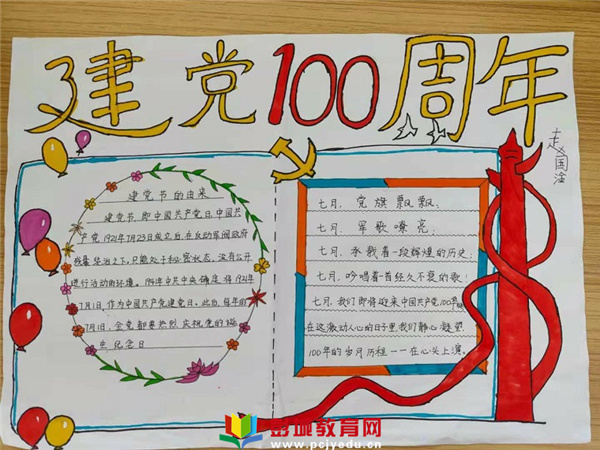 建党100周年
赵国淦
建党节的由来
建党节,即中国共产党日,中国共
产党1921年7月23日成立后,在反动军阀政府
残暴统治之下,只能处于秘密状态,没有公开
进行活动的环境。1941年中共中央确定将1921年
7月1日,作为中国共产党建党日。此后,每年的
7月1日,全党都要热烈庆祝党的诞
生纪念日
七月,党旗飘飘;
七月,军歌嘹亮;
七月,承载着一段辉煌的历史;
七月,吟唱着一首经久不衰的歌!
七月,我们即将迎来中国共产党100年
在这激动人心的日子里,我们静心凝望
100年的岁月历程——在心头上演。
金地教育网
www.pcjyedu.cn